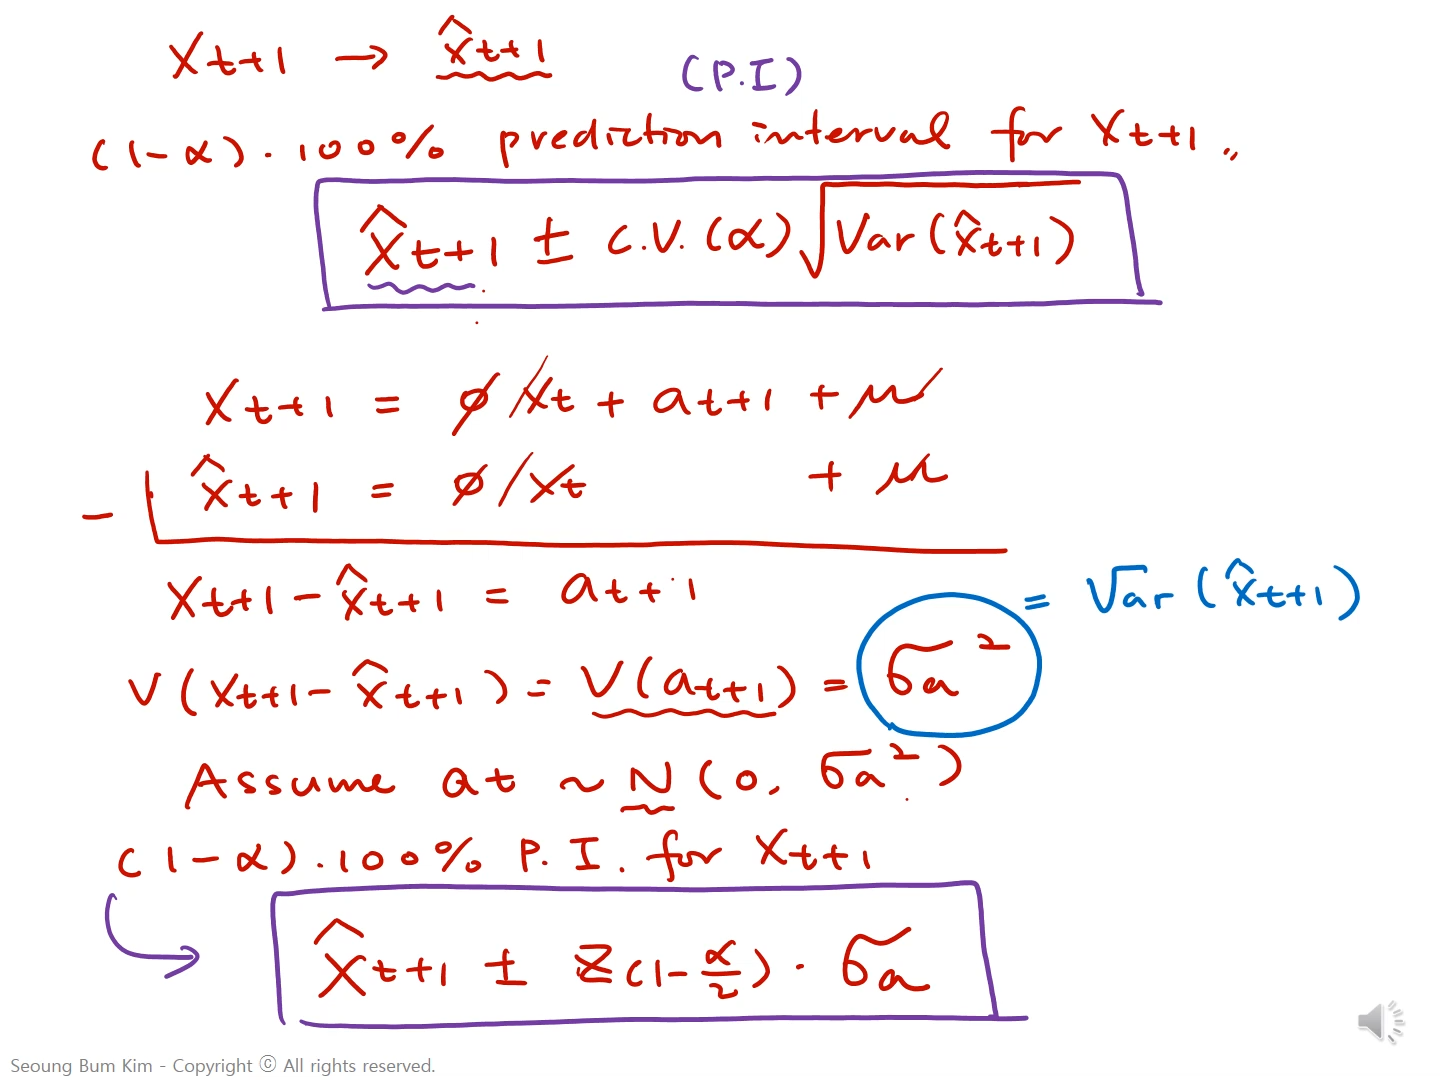 Xt+1 → X̂t+1
(P.I)
(1-α).100% prediction interval for Xt+1 ..
X̂t+1 ± C.V.(α)√Var(X̂t+1)
Xt+1 = ϕXt + at+1 + μ
- X̂t+1 = ϕXt + μ
Xt+1 - X̂t+1 = at+1
V(Xt+1 - X̂t+1) = V(at+1) = σa² = Var(X̂t+1)
Assume at ~ N(0, σa²)
(1-α).100% P.I. for Xt+1
X̂t+1 ± Z(1-α/2) · σa
Seoung Bum Kim - Copyright ⓒ All rights reserved.